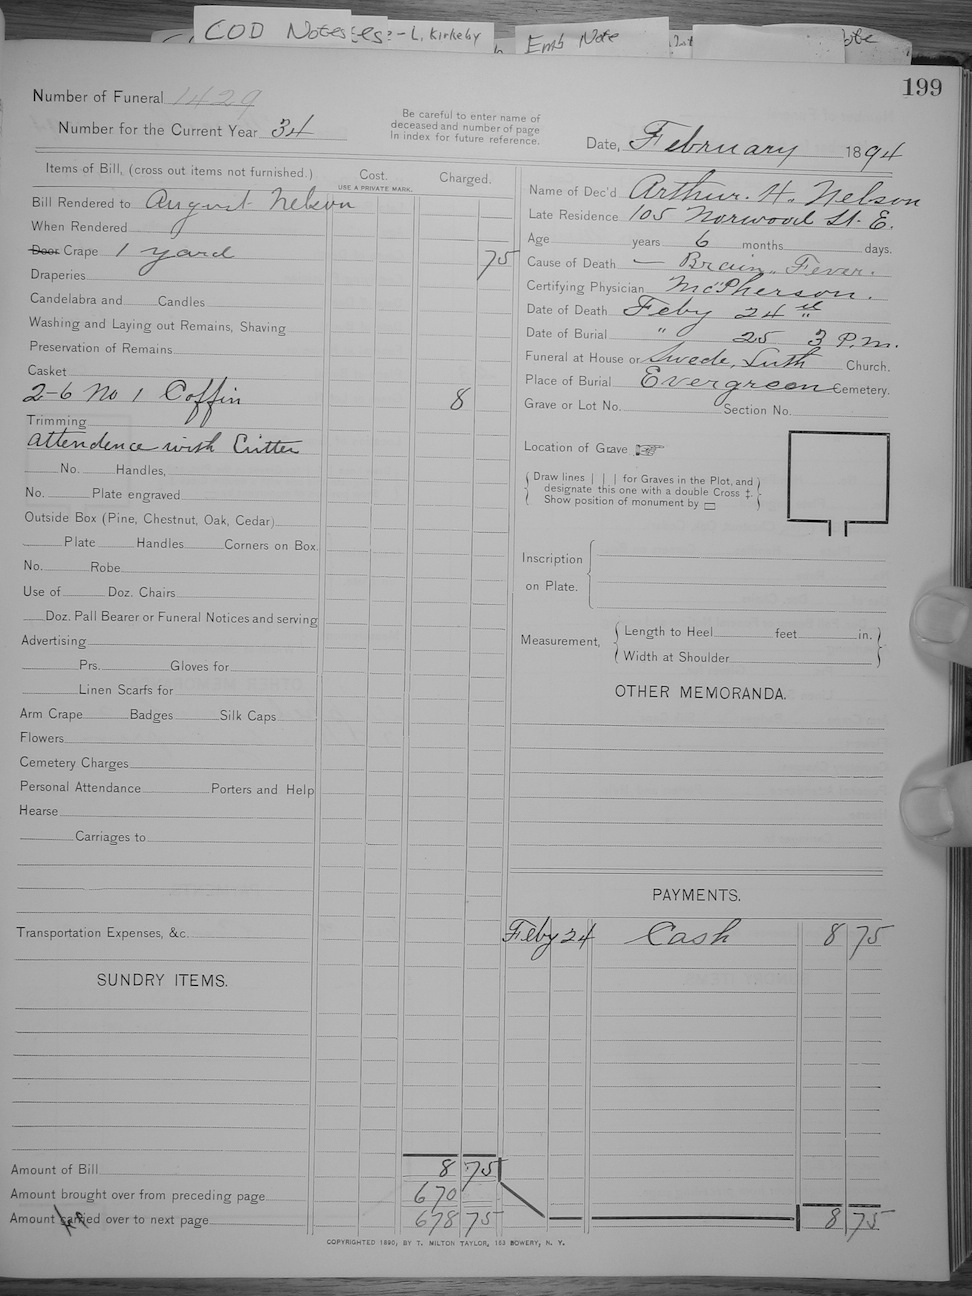 COD Notes
es:- L. Kirkeby
Emb Note
ote
199
Number of Funeral 1429
Number for the Current Year 34
Be careful to enter name of
deceased and number of page
in index for future reference.
Date, February 1894
Items of Bill, (cross out items not furnished.)
Cost.
USE A PRIVATE MARK.
Charged.
Bill Rendered to August Nelson
When Rendered
Door Crape 1 yard 75
Draperies
Candelabra and Candles
Washing and Laying out Remains, Shaving
Preservation of Remains
Casket
2-6 No 1 Coffin 8
Trimming
attendence with Cutter
No. Handles,
No. Plate engraved
Outside Box (Pine, Chestnut, Oak, Cedar)
Plate Handles Corners on Box
No. Robe
Use of Doz. Chairs
Doz. Pall Bearer or Funeral Notices and serving
Advertising
Prs. Gloves for
Linen Scarfs for
Arm Crape Badges Silk Caps
Flowers
Cemetery Charges
Personal Attendance Porters and Help
Hearse
Carriages to
Transportation Expenses, &c.
SUNDRY ITEMS.
Amount of Bill 8 75
Amount brought over from preceding page 670
Amount carried over to next page 678 75
Name of Dec'd Arthur. H. Nelson
Late Residence 105 Norwood St. E.
Age years 6 months days.
Cause of Death — Brain Fever.
Certifying Physician McPherson.
Date of Death Feby 24
Date of Burial " 25 3 P.M.
Funeral at House or Swede, Luth Church.
Place of Burial Evergreen Cemetery.
Grave or Lot No. Section No.
Location of Grave
Draw lines | | | for Graves in the Plot, and
designate this one with a double Cross ‡.
Show position of monument by ▭
Inscription
on Plate.
Measurement,
Length to Heel feet in.
Width at Shoulder
OTHER MEMORANDA.
PAYMENTS.
Feby 24 Cash 8 75
8 75
COPYRIGHTED 1890, BY T. MILTON TAYLOR, 153 BOWERY, N. Y.